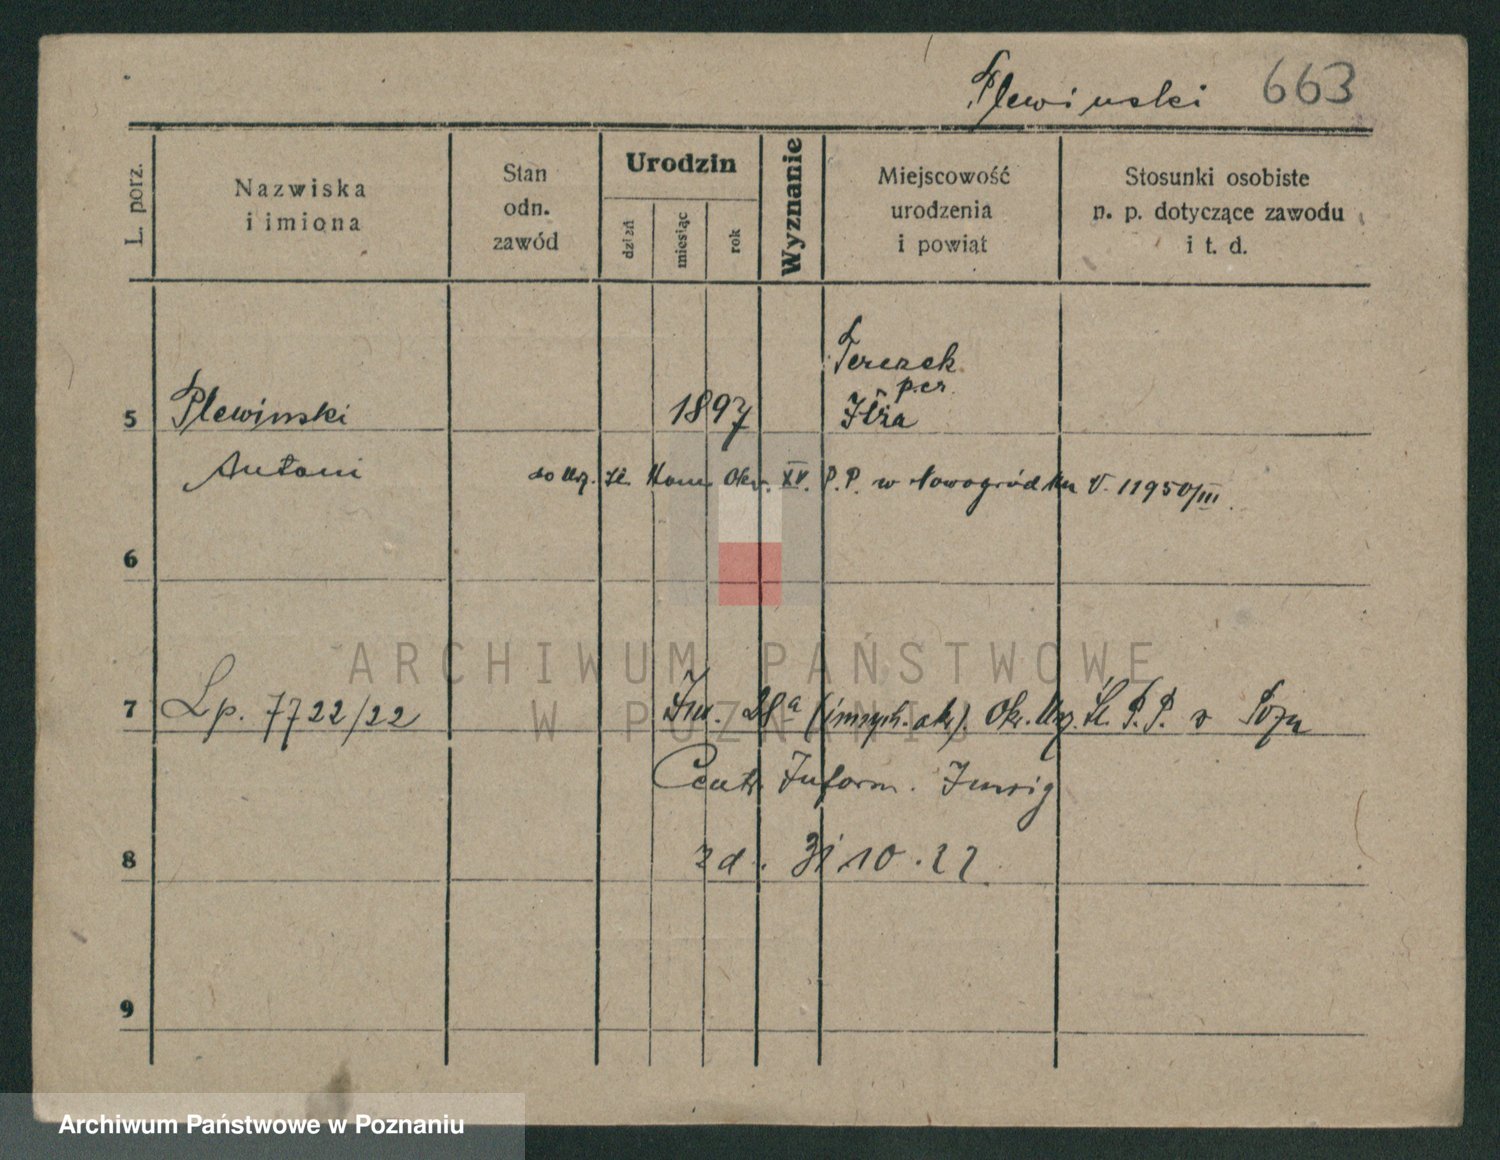 Plewinski 663
L. porz.
Nazwiska
i imiona
Stan
odn.
zawód
Urodzin
dzień
miesiąc
rok
Wyznanie
Miejscowość
urodzenia
i powiat
Stosunki osobiste
n. p. dotyczące zawodu
i t. d.
Terczek
pow.
5 Plewinski 1897 Iłża
Antoni do Urz. Śl. Kom. Okr. XV. P. P. w Nowogródku V. 11950/III
6
ARCHIWUM PAŃSTWOWE
W POZNANIU
7 Lp. 7722/22 Inw. 28a (innych. akt). Okr. Urz. Śl. P. P. Pozn
Centr. Inform. Inwig
8 zd. 31 10. 22
9
Archiwum Państwowe w Poznaniu